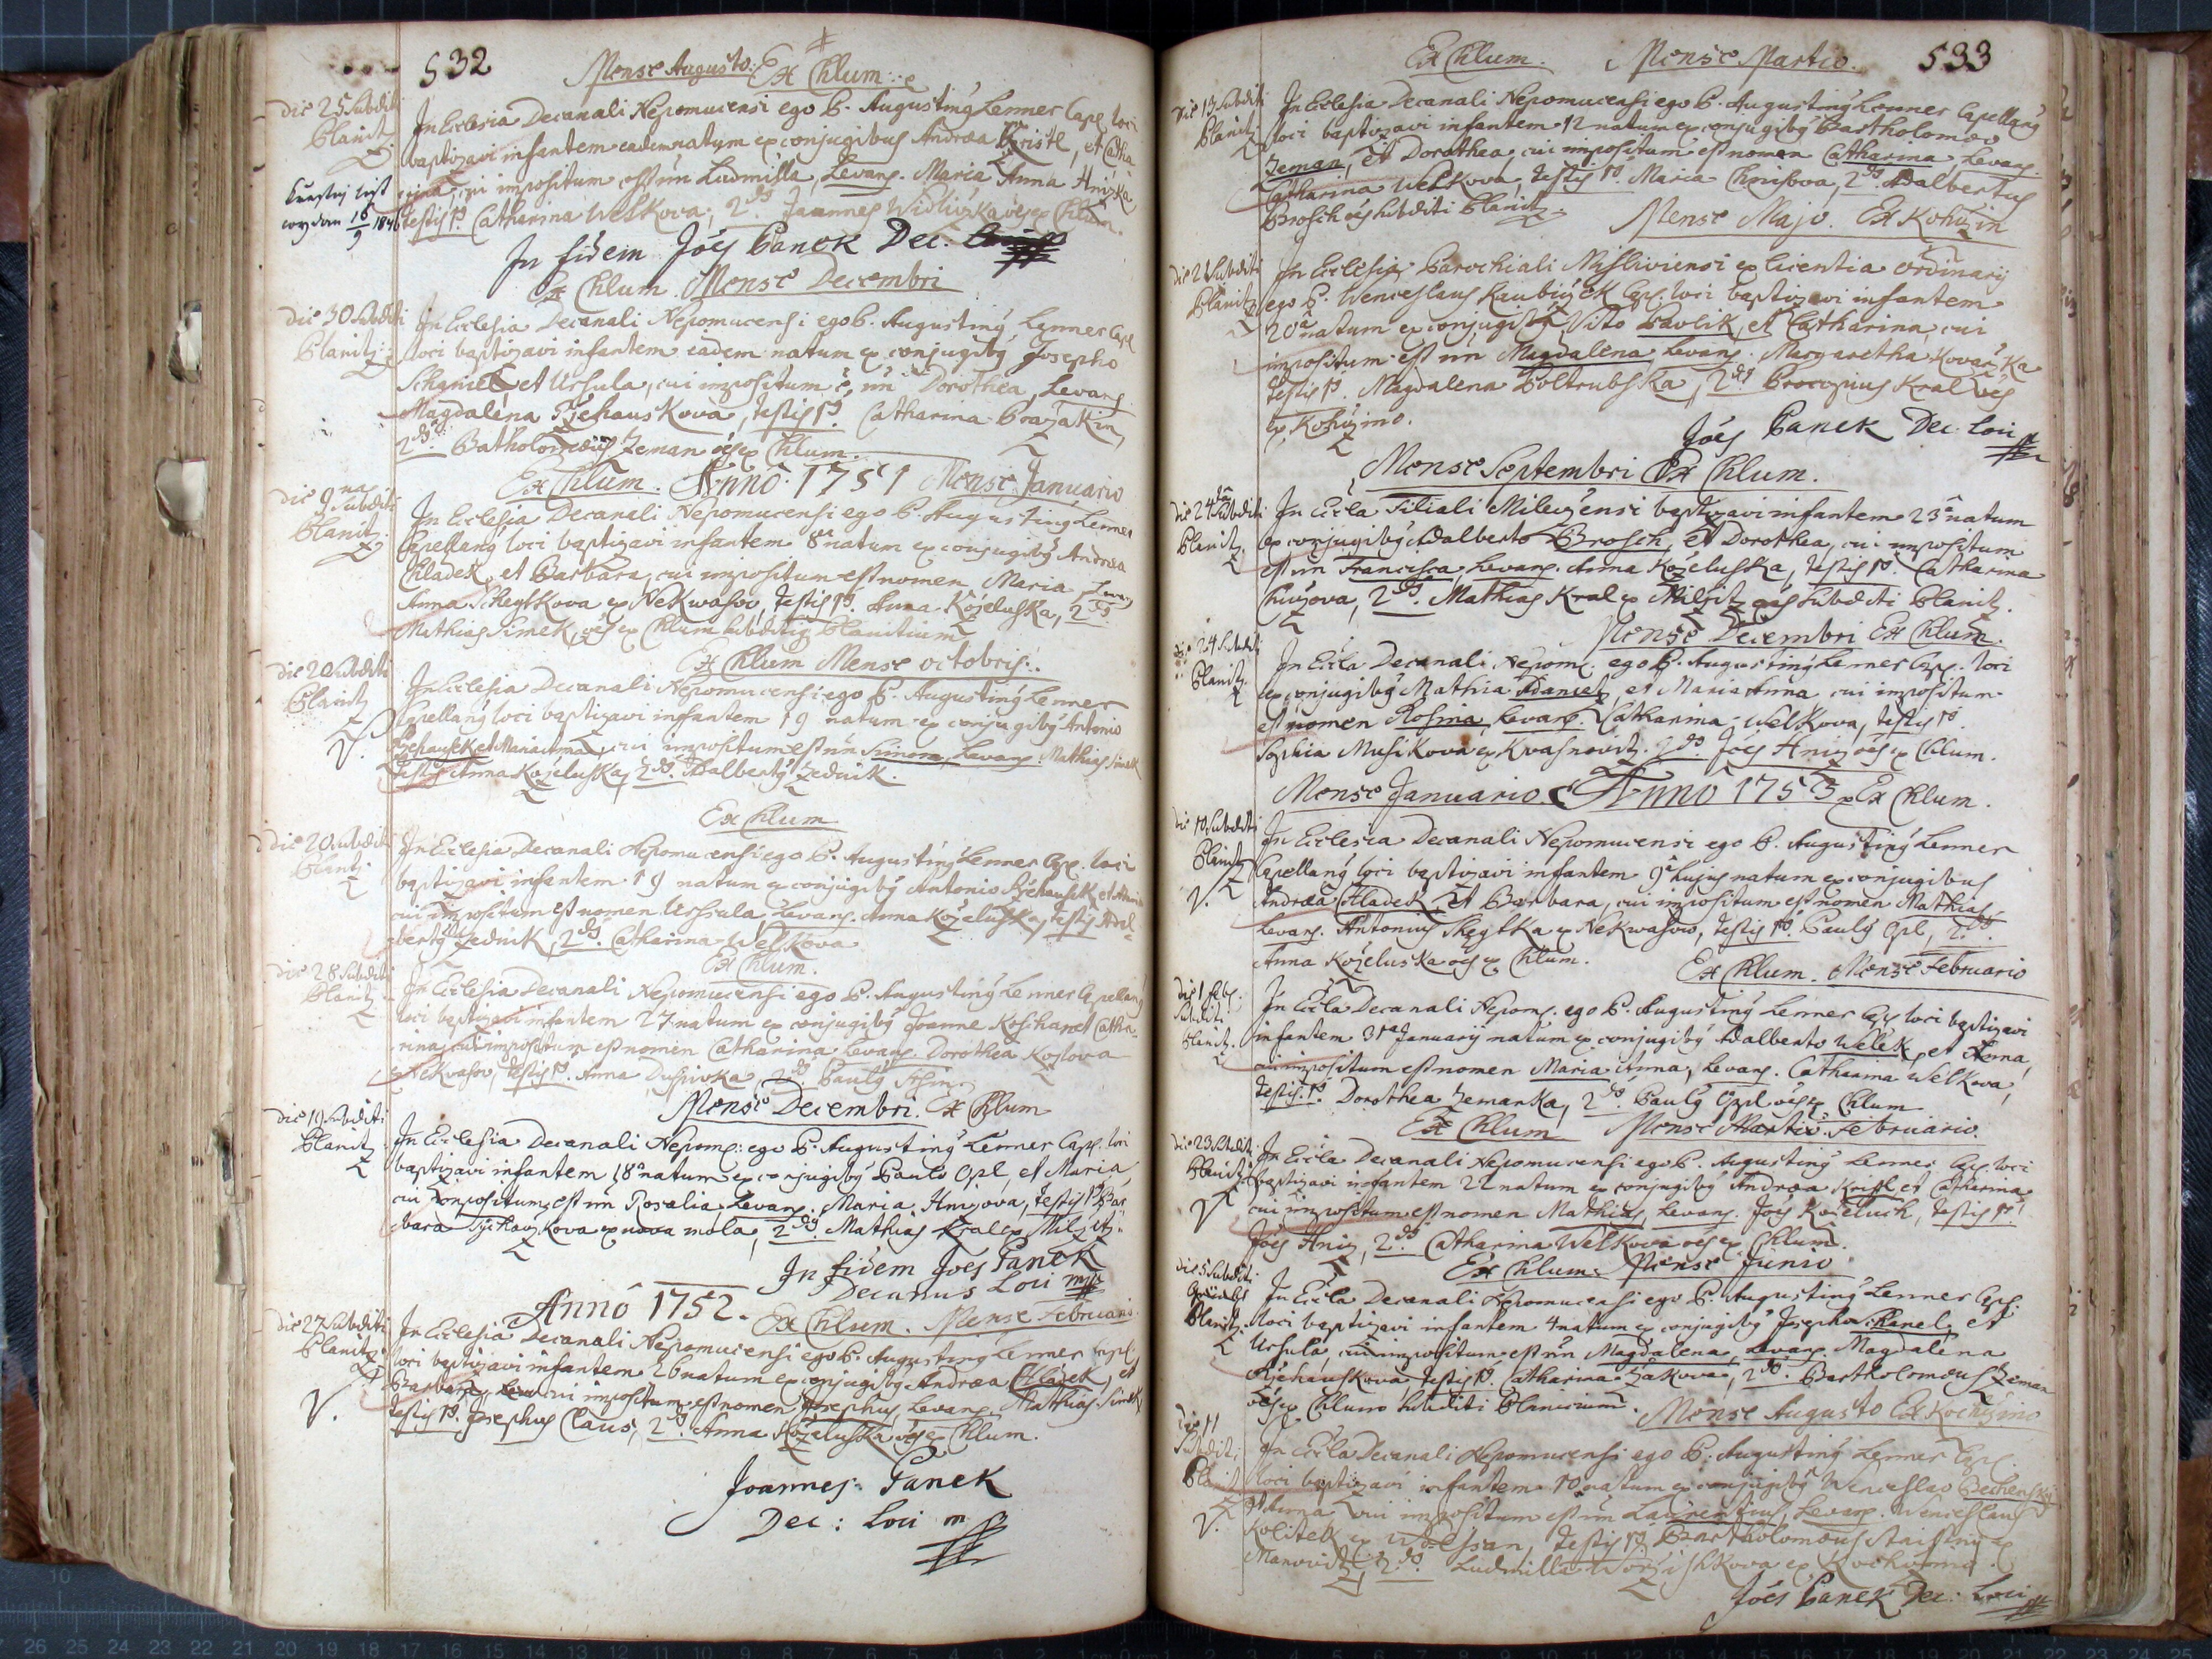 532
Mense Augusto. Ex Chlum.
Die 25 Subditi
Planitz
In Ecclesia Decanali Nepomucensi ego P. Augustinỹ Lenner Capel. loci
baptizavi infantem eadem natum ex conjugibus Andrea Kristl, et Catha
rina, cui impositum est nn Ludmilla, Levans. Maria Anna Hnizka
testis 1ꝰ Catharina Welkova, 2dꝰ Joannes oẽs ex Chlum.
Krestnj list
wydan 16/9 1846
In fidem Joẽs Panek Dec.
Ex Chlum. Mense Decembri
Die 30 Subditi
Planitz
In Ecclesia Decanali Nepomucensi ego P. Augustinỹ Lenner Capl
loci baptizavi infantem eadem natum ex conjugibỹ Josepho
et Ursula, cui impositum ẽ nn Dorothea, Levans.
Magdalena Rzehauskova, testis 1ꝰ Catharina
2dꝰ Batholomæus Zeman oẽs ex Chlum.
Ex Chlum. Anno 1751 Mense Januario
Die 9na Subditi
Planitz
In Ecclesia Decanali Nepomucensi ego P. Augustinỹ Lenner
Capellanỹ loci baptizavi infantem 8a natum ex conjugibỹ Andrea
Chladek, et Barbara, cui impositum est nomen Maria Levans.
Anna ex Nekwasow, testis 1ꝰ Anna Kozeluska, 2dꝰ
Mathias Simek, oẽs ex Chlum subditi Planitium
Ex Chlum Mense octobris.
Die 20 Subditi
Planitz
In Ecclesia Decanali Nepomucensi ego P. Augustinỹ Lenner
Capellanỹ loci baptizavi infantem 19 natum ex conjugibỹ Antonio
V.
Rzehausek et Maria Anna, cui impositum est nn Simon, Levans. Mathias Simek
testis Anna Kozeluska, 2dꝰ Adalbertỹ Zednik.
Ex Chlum
Die 20 Subditi
Planitz
In Ecclesia Decanali Nepomucensi ego P. Augustinỹ Lenner Cap. loci
baptizavi infantem 19 natum ex conjugibỹ Antonio Rzehausek et
cui impositum est nomen Ursula Levans. Anna Kozeluska, testis Adal-
bertỹ Zednik, 2dꝰ Catharina Welkova
Ex Chlum.
Die 28 Subditi
Planitz
In Ecclesia Decanali Nepomucensi ego P. Augustinỹ Lenner Capellanỹ
loci baptizavi infantem 27 natum ex conjugibỹ Joanne et Catha-
rina, cui impositum est nomen Catharina Levans. Dorothea Kozlova
Nekvasow, testis 1ꝰ Anna 2dꝰ Paulỹ
Mense Decembri. Ex Chlum
Die 19 Subditi
Planitz
In Ecclesia Decanali Nepom: ego P. Augustinỹ Lenner Cap. loci
baptizavi infantem 18a natum ex conjugibỹ Paulo Opl, et Maria
cui impositum est nn Rosalia Levans. Maria Hnizova, testis 1ꝰ Bar-
bara ex nova mola, 2dꝰ Mathias Kral ex Milzitz.
In fidem Joẽs Panek
Decanus Loci mpp
Anno 1752. Ex Chlum. Mense Februario.
Die 27 Subditi
Planitz
In Ecclesia Decanali Nepomucensi ego P. Augustinỹ Lenner Capl:
loci baptizavi infantem 26 natum ex conjugibỹ Andrea Hladek, et
V.
Barbara, cui impositum est nomen Josephus, Levans. Mathias Simek
testis 1ꝰ Josephus Claus, 2dꝰ Anna Kozeluska oẽs ex Chlum.
Joannes Panek
Dec: Loci m
Ex Chlum. Mense Martio. 533
Die 13 Subditi
Planitz
In Ecclesia Decanali Nepomucensi ego P. Augustinỹ Lenner Capellanỹ
loci baptizavi infantem 12 natum ex conjugibỹ Bartholomeo
Zeman, et Dorothea, cui impositum est nomen Catharina Levans.
Catharina Welkova, testis 1ꝰ Maria 2dꝰ Adalbertus
Brosch oẽs subditi Planitz.
Mense Majo. Ex Kohuzin
Die 21 Subditi
Planitz
In Ecclesia Parochiali Misliviensi ex licentia ordinarij
ego P. Wenceslaus Raubiczek Cap. loci baptizavi infantem
20a natum ex conjugibỹ Vito Pavlik, et Catharina, cui
impositum est nn Magdalena Levans. Margaretha Kovarzka
testis 1ꝰ Magdalena Poltrubska, 2dꝰ Procopius Kral oẽs
ex Kohuzino.
Joẽs Panek Dec. Loci
Mense Septembri Ex Chlum.
Die 24ta Subditi
Planitz
In Eccla Filiali Mileczensi baptizavi infantem 23a natum
ex conjugibỹ Adalberto Brosch, et Dorothea, cui impositum
est nn Francisca, Levans. Anna Kozeluska, testis 1ꝰ Catharina
2dꝰ Mathias Kral ex Milzitz oẽs subditi Planitz.
Mense Decembri Ex Chlum.
Die 24 Subditi
Planitz
In Eccla Decanali Nepom. ego P. Augustinỹ Lenner Cap. loci
ex conjugibỹ Mathia et Maria Anna cui impositum
est nomen Rosina, Levans. Catharina Welkova, testis 1ꝰ
Sophia Musikova ex Kvasnovitz. 2dꝰ Joẽs Hniz oẽs ex Chlum.
Mense Januario Anno 1753 Ex Chlum.
Die 10 Subditi
Planitz
In Ecclesia Decanali Nepomucensi ego P. Augustinỹ Lenner
V.
Capellanỹ loci baptizavi infantem 9a hujus natum ex conjugibus
Andrea Hladek, et Barbara, cui impositum est nomen Mathias
Levans. Antonius ex Nekwasow, testis 1ꝰ Paulỹ Opl, 2dꝰ
Anna Kozeluska oẽs ex Chlum.
Ex Chlum. Mense Februario
Die 1 Feb.
Subditi
Planitz
In Eccla Decanali Nepom. ego P. Augustinỹ Lenner Cap. loci baptizavi
infantem 31a Januarij natum ex conjugibỹ Adalberto Welek, et Anna,
cui impositum est nomen Maria Anna, Levans. Catharina Welkova,
testis 1ꝰ Dorothea Zemanka, 2dꝰ Paulỹ Opl oẽs ex Chlum
Ex Chlum Mense Martio Februario.
Die 23 Subditi
Planitz
In Eccla Decanali Nepomucensi ego P. Augustinỹ Lenner Cap. loci
V
baptizavi infantem 22 natum ex conjugibỹ Andrea Kristl et Catharina
cui impositum est nomen Mathias, Levans. Joẽs Kozeluch, testis 1ꝰ
Joẽs Hniz, 2dꝰ Catharina Welkova oẽs ex Chlum.
Ex Chlum. Mense Junio
Die 5 Subditi
Planitz
In Eccla Decanali Nepomucensi ego P. Augustinỹ Lenner Cap.
loci baptizavi infantem 4 natum ex conjugibỹ Josepho et
Ursula cui impositum est nn Magdalena, Levans. Magdalena
Rzehauskova, testis 1ꝰ Catharina Zakova, 2dꝰ Bartholomæus Zeman
oẽs ex Chlum subditi Planicium.
Mense Augusto Ex Kochuzino
Die 11
Subditi
Planitz
In Eccla Decanali Nepomucensi ego P. Augustinỹ Lenner Cap.
loci baptizavi infantem 10 natum ex conjugibỹ Wenceslao
V.
Anna cui impositum est nn Laurentius, Levans. Wenceslaus
Kolitek ex testis 1ꝰ Bartholomæus ex
2dꝰ Ludmilla ex Kochuzino.
Joẽs Panek Dec: Loci